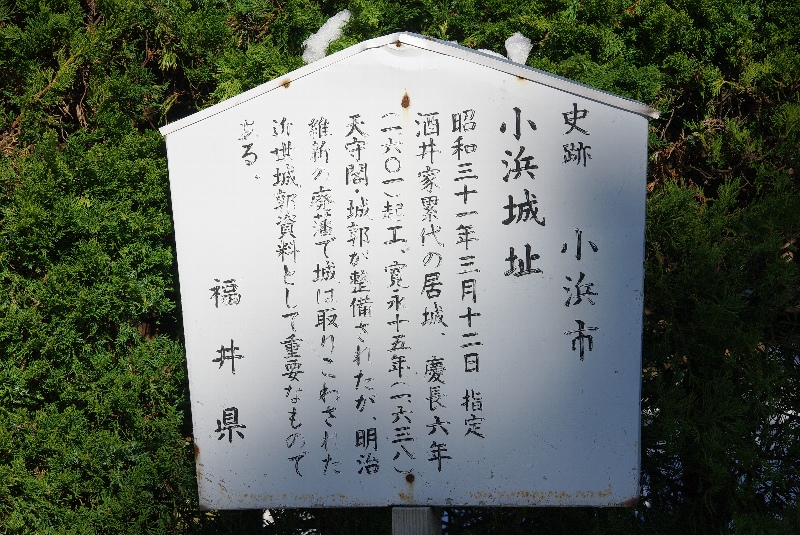 史跡 小浜市
小浜城址
昭和三十一年三月十二日 指定
酒井家累代の居城、慶長六年
(一六〇一)起工、寛永十五年(一六三八)
天守閣・城郭が整備されたが、明治
維新の廃藩で城は取りこわされた
近世城郭資料として重要なもので
ある。
福井県